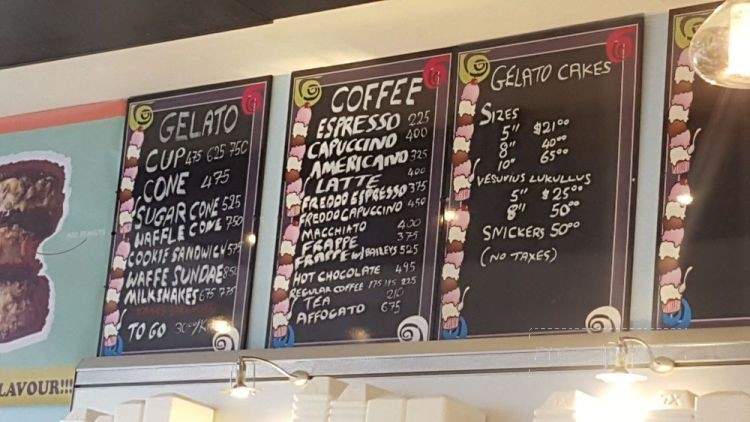 GELATO
CUP 475 625 750
CONE 475
SUGAR CONE 525
WAFFLE CONE 750
COOKIE SANDWICH 575
WAFFE SUNDAE 850
MILKSHAKES 675 775
TO GO
LAVOUR!!!
COFFEE
ESPRESSO 225
CAPUCCINO 400
AMERICANO 325
LATTE 400
FREDDO ESPRESSO 375
FREDDO CAPUCCINO 450
MACCHIATO 400
FRAPPE 375
FRAPPE W/ BAILEYS 525
HOT CHOCOLATE 495
REGULAR COFFEE 175 195 225
TEA 210
AFFOGATO 675
GELATO CAKES
SIZES
5" $21.00
8" 40.00
10" 65.00
VESUVIUS LUKULLUS
5" $25.00
8" 50.00
SNICKERS 50.00
(NO TAXES)